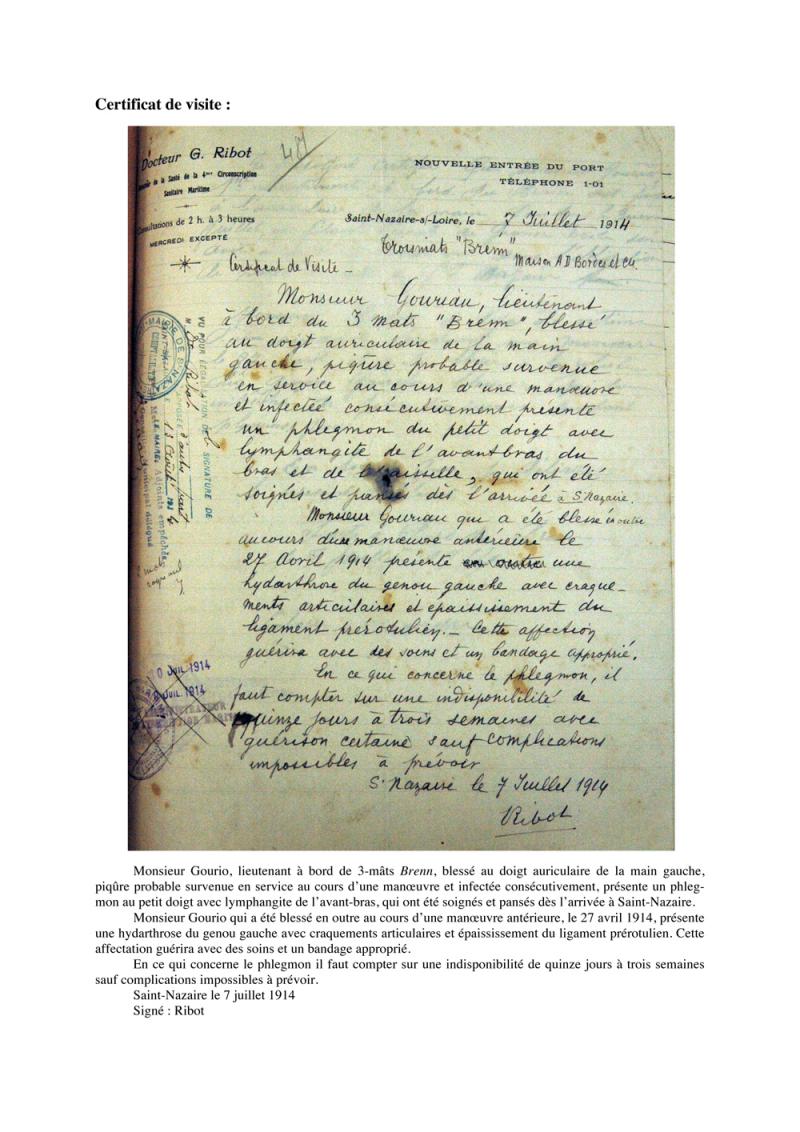 Certificat de visite :
Docteur G. Ribot
de la Santé de la 4me Circonscription
Sanitaire Maritime
Consultations de 2 h. à 3 heures
MERCREDI EXCEPTÉ
48
NOUVELLE ENTRÉE DU PORT
TÉLÉPHONE 1-01
Saint-Nazaire-s/-Loire, le 7 Juillet 1914
Troismats "Brenn"
Maison A D Bordes et Cie
Certificat de Visite _
Monsieur Gouriau, lieutenant
à bord du 3 mats "Brenn", blessé
au doigt auriculaire de la main
gauche, piqûre probable survenue
en service au cours d'une manœuvre
et infectée consécutivement présente
un phlegmon du petit doigt avec
lymphangite de l'avant bras du
bras et de l'aisselle, qui ont été
soignés et pansés dès l'arrivée à St Nazaire.
Monsieur Gouriau qui a été blessé en outre
au cours d'une manœuvre antérieure le
27 Avril 1914 présente en outre une
hydarthrose du genou gauche avec craque-
ments articulaires et épaississement du
ligament prérotulien. _ Cette affection
guérira avec des soins et un bandage approprié.
En ce qui concerne le phlegmon, il
faut compter sur une indisponibilité de
quinze jours à trois semaines avec
guérison certaine sauf complications
impossibles à prévoir
St Nazaire le 7 Juillet 1914
Ribot
VU POUR LÉGALISATION DE LA SIGNATURE DE
M. Dr Ribot
MAIRIE DE ST NAZAIRE
d'autre part
Adjoints empêchés
municipal délégué
0 JUIL. 1914
JUIL. 1914
Monsieur Gourio, lieutenant à bord de 3-mâts Brenn, blessé au doigt auriculaire de la main gauche,
piqûre probable survenue en service au cours d'une manœuvre et infectée consécutivement, présente un phleg-
mon au petit doigt avec lymphangite de l'avant-bras, qui ont été soignés et pansés dès l'arrivée à Saint-Nazaire.
Monsieur Gourio qui a été blessé en outre au cours d'une manœuvre antérieure, le 27 avril 1914, présente
une hydarthrose du genou gauche avec craquements articulaires et épaississement du ligament prérotulien. Cette
affectation guérira avec des soins et un bandage approprié.
En ce qui concerne le phlegmon il faut compter sur une indisponibilité de quinze jours à trois semaines
sauf complications impossibles à prévoir.
Saint-Nazaire le 7 juillet 1914
Signé : Ribot